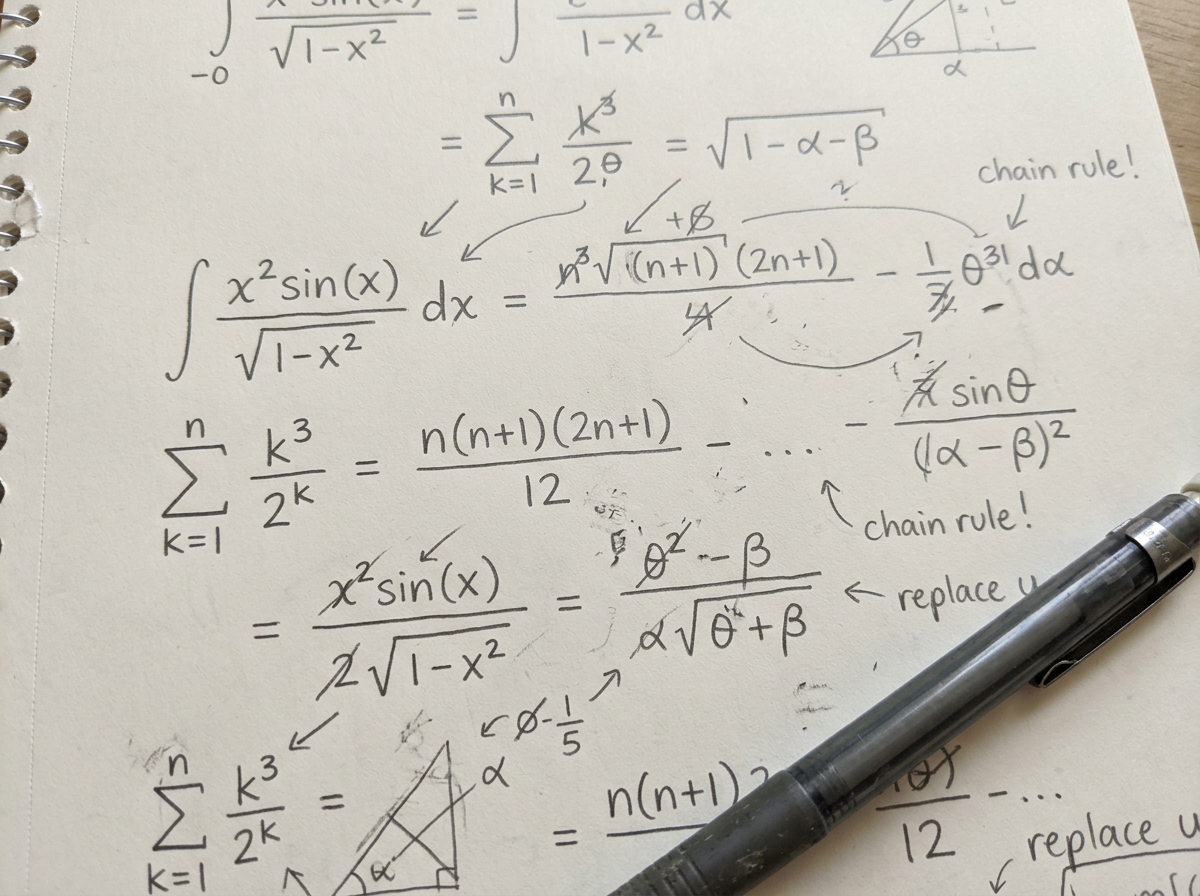 ∫ √(1-x²) = ∫ 1-x² dx
-0
θ
α
= Σ_{k=1}^{n} k³/2θ = √(1-α-β)
chain rule!
∫ x²sin(x)/√(1-x²) dx = n³√(n+1)(2n+1)/4 - 1/2 θ³¹ dα
Σ_{k=1}^{n} k³/2^k = n(n+1)(2n+1)/12 - ... - sinθ/(α-β)²
chain rule!
= x²sin(x)/2√(1-x²) = θ²-β/α√(θ+β)
← replace
ø-1/5
α
Σ_{k=1}^{n} k³/2^k =
α
= n(n+1)
12 - ...
replace